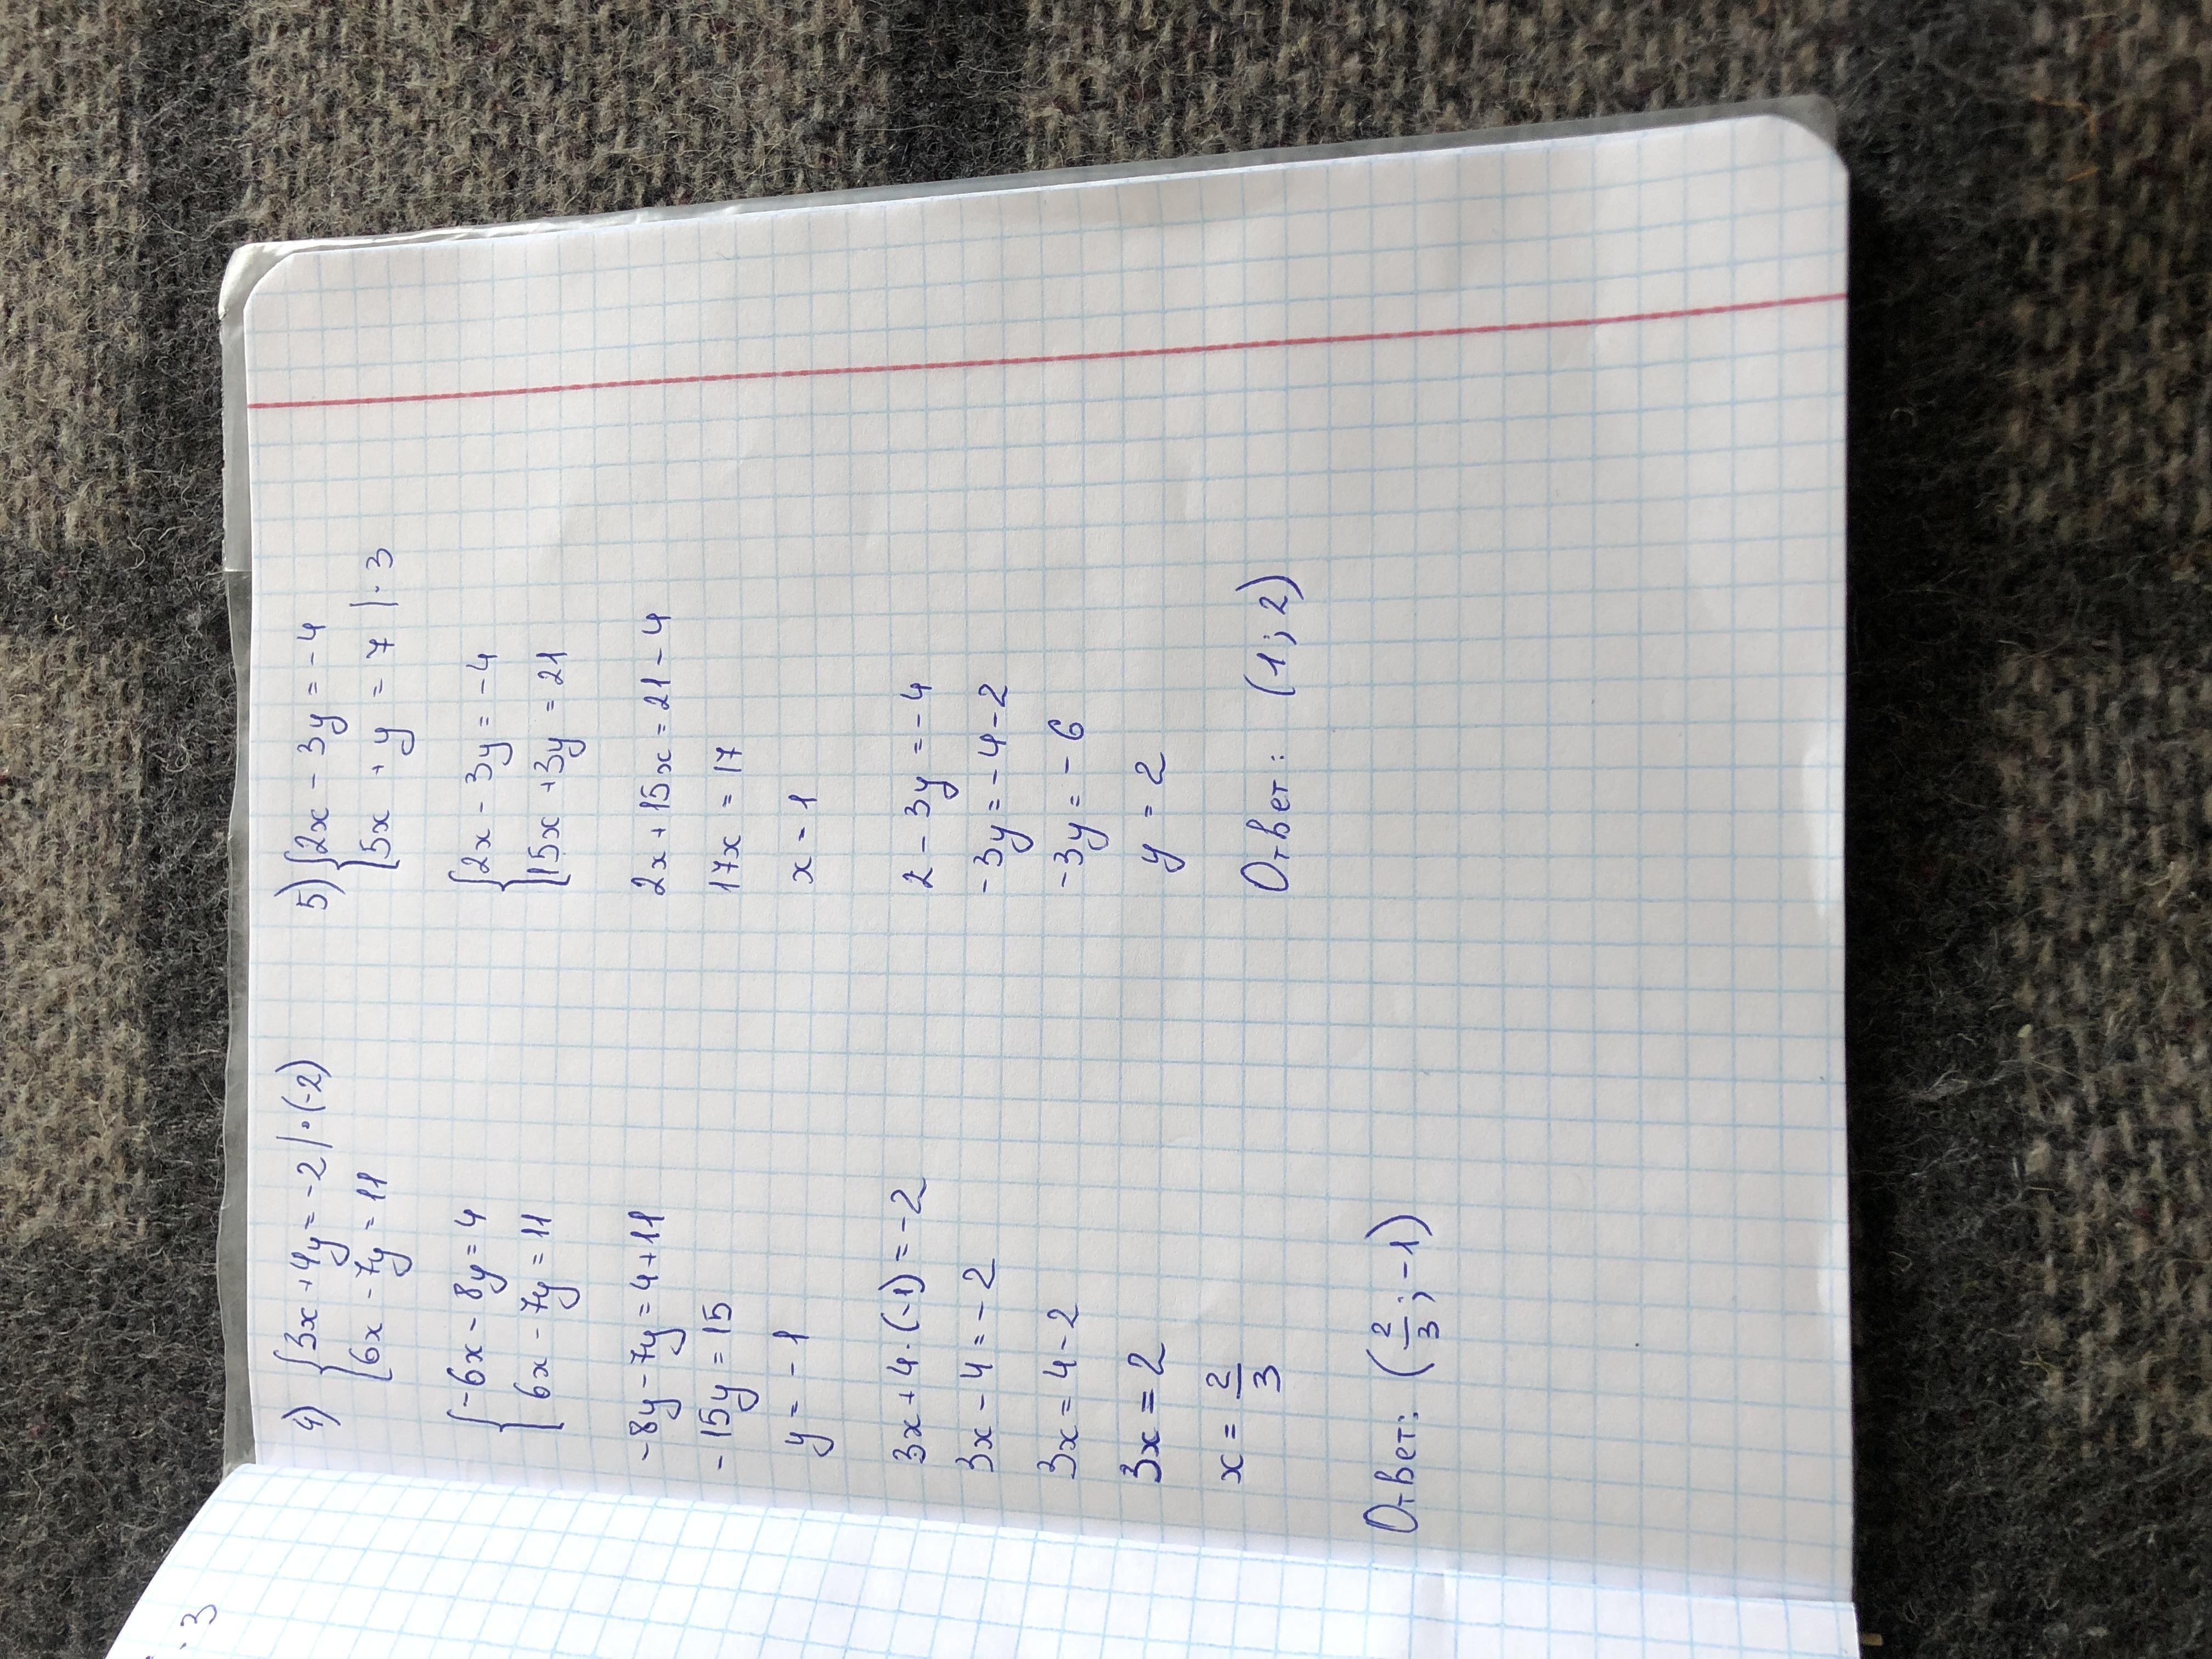 4) {3x + 4y = -2 | · (-2)
6x - 7y = 11
{-6x - 8y = 4
6x - 7y = 11
-8y - 7y = 4 + 11
-15y = 15
y = -1
3x + 4 · (-1) = -2
3x - 4 = -2
3x = 4 - 2
3x = 2
x = 2/3
Ответ: (2/3; -1)
5) {2x - 3y = -4
5x + y = 7 | · 3
{2x - 3y = -4
15x + 3y = 21
2x + 15x = 21 - 4
17x = 17
x = 1
2 - 3y = -4
-3y = -4 - 2
-3y = -6
y = 2
Ответ: (1; 2)
· 3